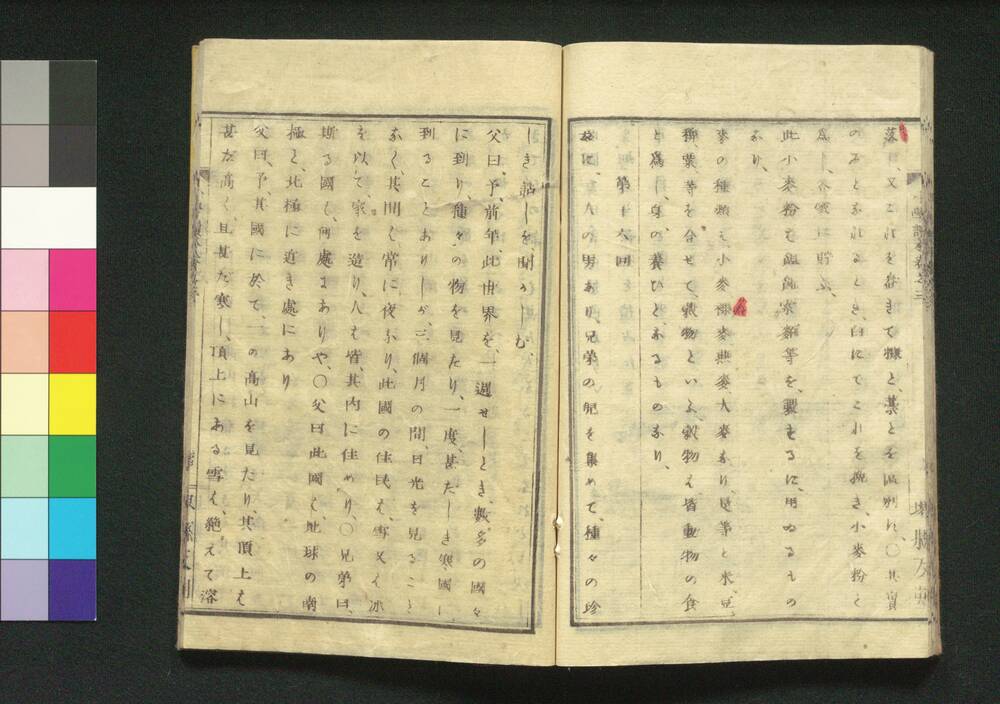 落し、又これを舂きて糠と、藁とを區別れ、〇其實
のみとなれるとき、臼にてこれを挽き、小麥粉と
爲し、木筺に貯ふ、
此小麥粉を、麺麭、索麺等を、製するに、用ゐるもの
なり、
麥の種類え、小麥、裸麥、燕麥、大麥なり、是等と米、豆、
稗、粟、等を合せて、穀物といふ、穀物え、皆動物の食
と爲し、身の養ひとなるものなり、
第十六回
茲に、一人の男あり兄弟の兒を集めて、種々の珍
しき話しを、聞かしむ、
父曰、予、前年、此世界を、一週せしとき、數多の國々
に到り、種々の物を見たり、一度、甚だしき寒國に
到ることありしが、三個月の間、日光を見ること
なく、其間え、常に夜なり、此國の住民え、雪又え冰
を以て家を造り、人も皆、其内に住めり、〇兄弟曰、
斯る國え、何處にありや、〇父曰此國え、地球の南
極と、北極に近き處にあり
父曰、予、其國に於て、一の高山を見たり、其頂上え
甚だ高く、且甚だ寒し、頂上にある雪え、絶えて溶